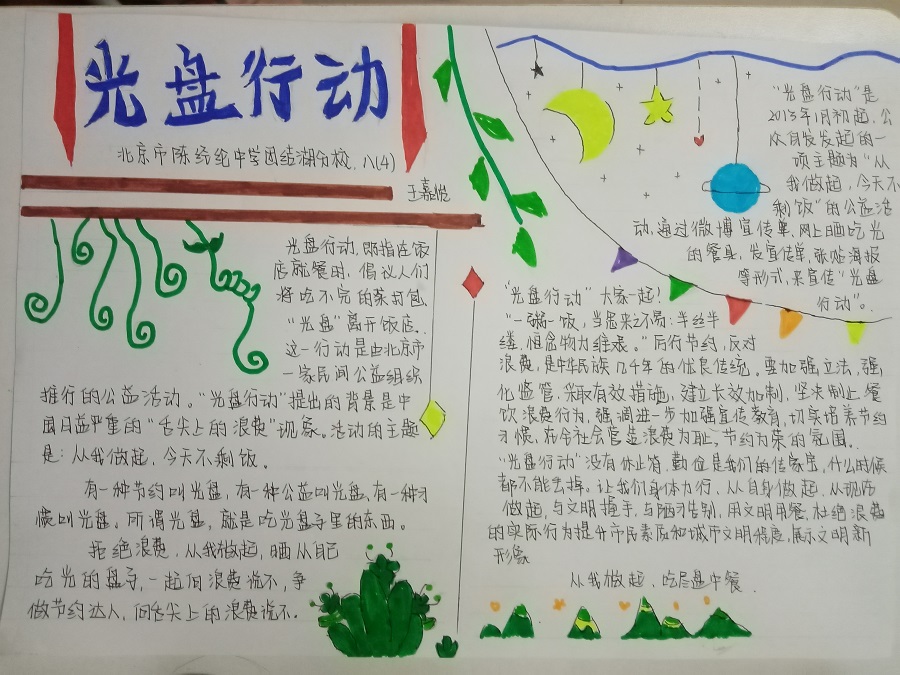 光盘行动
北京市陈经纶中学团结湖分校,八(4)
王嘉悦
光盘行动,即指在饭
店就餐时,倡议人们
将吃不完的菜打包,
"光盘"离开饭店.
这一行动是由北京市
一家民间公益组织
推行的公益活动。"光盘行动"提出的背景是中
国日益严重的"舌尖上的浪费"现象。活动的主题
是:从我做起,今天不剩饭。
有一种节约叫光盘,有一种公益叫光盘,有一种习
惯叫光盘。所谓光盘,就是吃光盘子里的东西。
拒绝浪费,从我做起,晒从自己
吃光的盘子,一起向浪费说不,争
做节约达人,向舌尖上的浪费说不.
"光盘行动"是
2013年1月初起,公
众自发发起的一
项主题为"从
我做起,今天不
剩饭"的公益活
动,通过微博宣传单,网上晒吃光
的餐具,发宣传单,张贴海报
等形式,来宣传"光盘
行动"。
"光盘行动"大家一起!
"一粥一饭,当思来之不易;半丝半
缕,恒念物力维艰。"厉行节约,反对
浪费,是中华民族几千年的优良传统。要加强立法,强
化监管,采取有效措施,建立长效机制,坚决制止餐
饮浪费行为,强调进一步加强宣传教育,切实培养节约
习惯,在全社会营造浪费为耻,节约为荣的氛围.
"光盘行动"没有休止符,勤俭是我们的传家宝,什么时候
都不能丢掉。让我们身体力行,从自身做起,从现在
做起,与文明握手,与陋习告别,用文明用餐,杜绝浪费
的实际行为提升市民素质和城市文明程度,展示文明新
形象
从我做起,吃尽盘中餐.